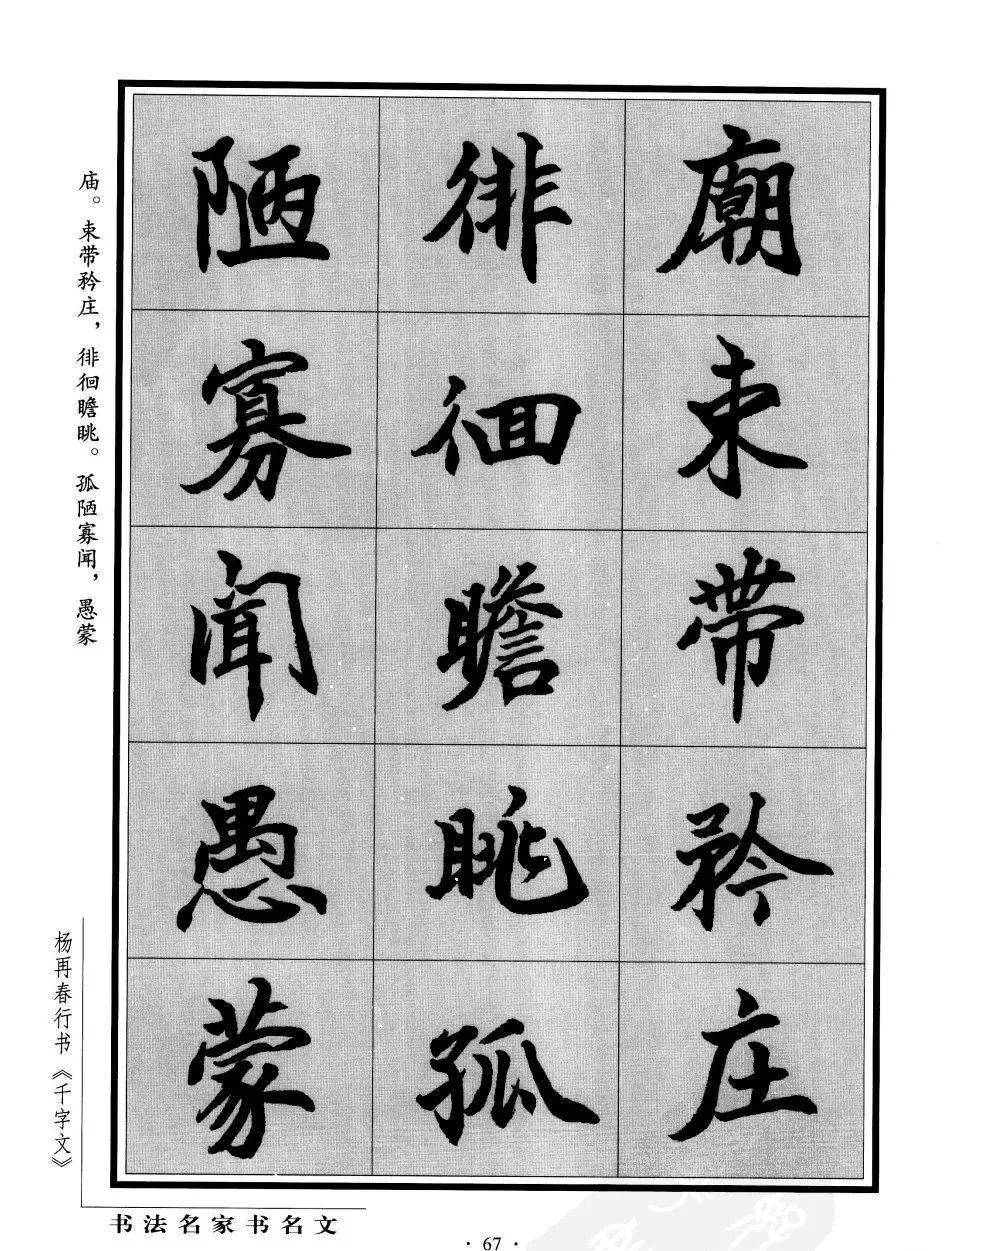 廟束带矜庄
徘徊瞻眺孤
陋寡闻愚蒙
庙。束带矜庄，徘徊瞻眺。孤陋寡闻，愚蒙
杨再春行书《千字文》
书法名家书名文
· 67 ·